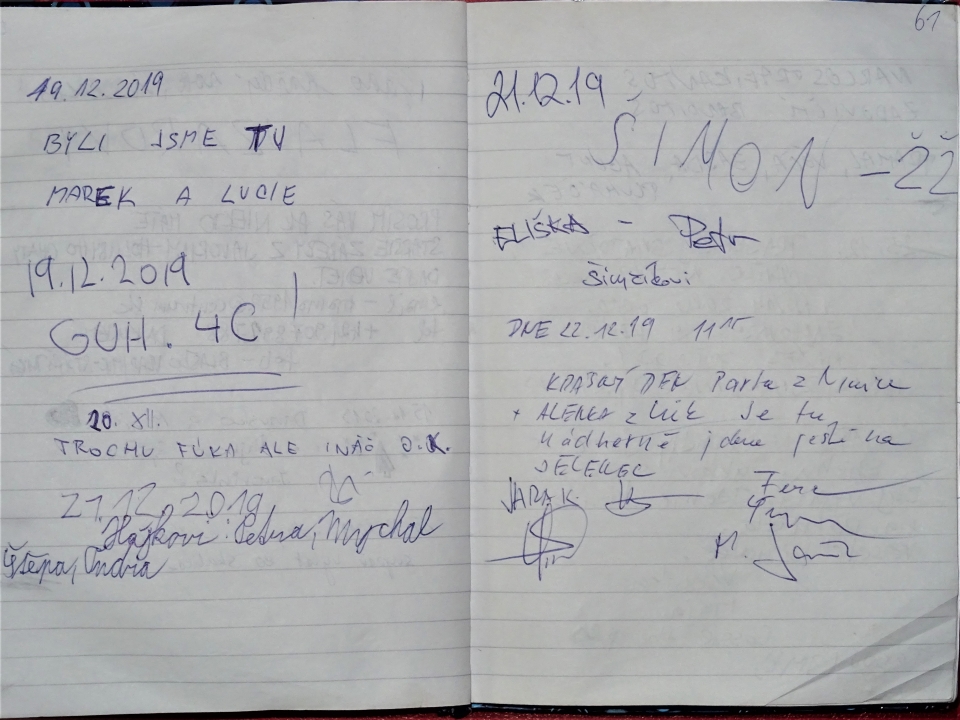 19.12.2019
BYLI JSME TU
MAREK A LUCIE
19.12.2019
GUH. 4C
20. XII.
TROCHU FÚKA ALE INÁČ O.K.
21.12.2019
Hajkovi: Petra, Mychal
Štěpa, Ondra
61
21.12.19
SIMON - ŽŽ
ELIŠKA - Petr
Šimčíkovi
DNE 22.12.19 11 15
KRÁSNÝ DEN Parta z
+ ALENKA z Je tu
nádherně jdeme ještě na
JELENEC
JARA K.
Fera
M.